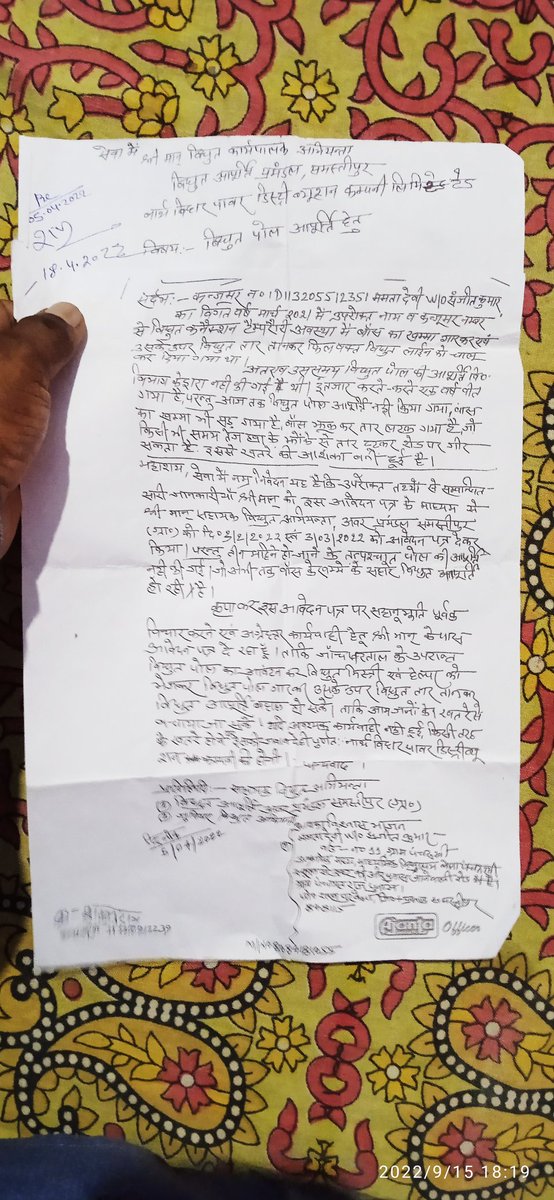 सेवा में
श्री मान् विधुत कार्यपालक अभियन्ता
विधुत आपूर्ति प्रमंडल, समस्तीपुर
नार्थ बिहार पावर डिस्ट्रीब्यूशन कम्पनी लिमिटेड
Re
05.04.2022
18.4.2022
विषय:- विधुत पोल आपूर्ति हेतु
कन्जूमर न० ID 113205512351 ममता देवी W/O संजीत कुमार,
का विगत वर्ष मार्च 2021 में उपरोक्त नाम व कन्जूमर नम्बर
से विधुत कनेक्शन टैम्परैरी अवस्था में बाँस का खम्भा गारकर एवं
उसके उपर विधुत तार तानकर विधुत लाईन को चालु
कर दिया गया था।
अतएव उस समय विधुत पोल की आपूर्ति वि०
विभाग के द्वारा नहीं की गई है थी। इंतजार करते-करते एक वर्ष बीत
गया है, परन्तु आज तक विधुत पोल आपूर्ति नहीं किया गया, बाँस
का खम्भा भी सड़ गया है, बाँस झुक कर तार लरक गया है जो
किसी भी समय तेज हवा के झोंके से तार टुटकर रोड पर गीर
सकता है। इससे खतरे की आशंका बनी हुई है।
महाशय, सेवा में नम्र निवेदन यह है कि उपरोक्त तथ्यों से सम्बन्धित
सारी जानकारियाँ श्री मान् को इस आवेदन पत्र के माध्यम से
श्री मान् सहायक विधुत अभियन्ता, अवर प्रमंडल समस्तीपुर
(ग्रा०) को दि० /2/2022 एवं 3/03/2022 को आवेदन पत्र देकर
किया। परन्तु तीन महिने हो जाने के तत्पश्चात् पोल की आपूर्ति
नहीं की गई। जो अभी तक बाँस के खम्भे के सहारे विधुत आपूर्ति
हो रही है।
कृपा कर इस आवेदन पत्र पर सहानूभुति पूर्वक
विचार करते एवं अग्रेतर कार्यवाही हेतु श्री मान् के पास
आवेदन पत्र दे रहा हूँ। ताकि जाँच परताल के उपरान्त
विधुत पोल का आवंटन कर विधुत मिस्त्री एवं हेल्पर को
भेजकर विधुत पोल गारकर उसके उपर विधुत तार तानकर
विधुत आपूर्ति बहाल हो सके। ताकि आम जनों को खतरे से
बचाया जा सके। यदि आवश्यक कार्यवाही नहीं हुई, किसी तरह
के खतरे होने पर जवाबदेही पूर्णतः नार्थ बिहार पावर डिस्ट्रीब्यू
शन कम्पनी की होगी।
धन्यवाद।
प्रतिलिपि:- सहायक विधुत अभियन्ता
① विधुत आपूर्ति अवर प्रमंडल समस्तीपुर (ग्रा०)
② जूनियर विधुत अभियन्ता
आपका विश्वास भाजन
ममता देवी W/O संजीत कुमार
Officer
2022/9/15 18:19